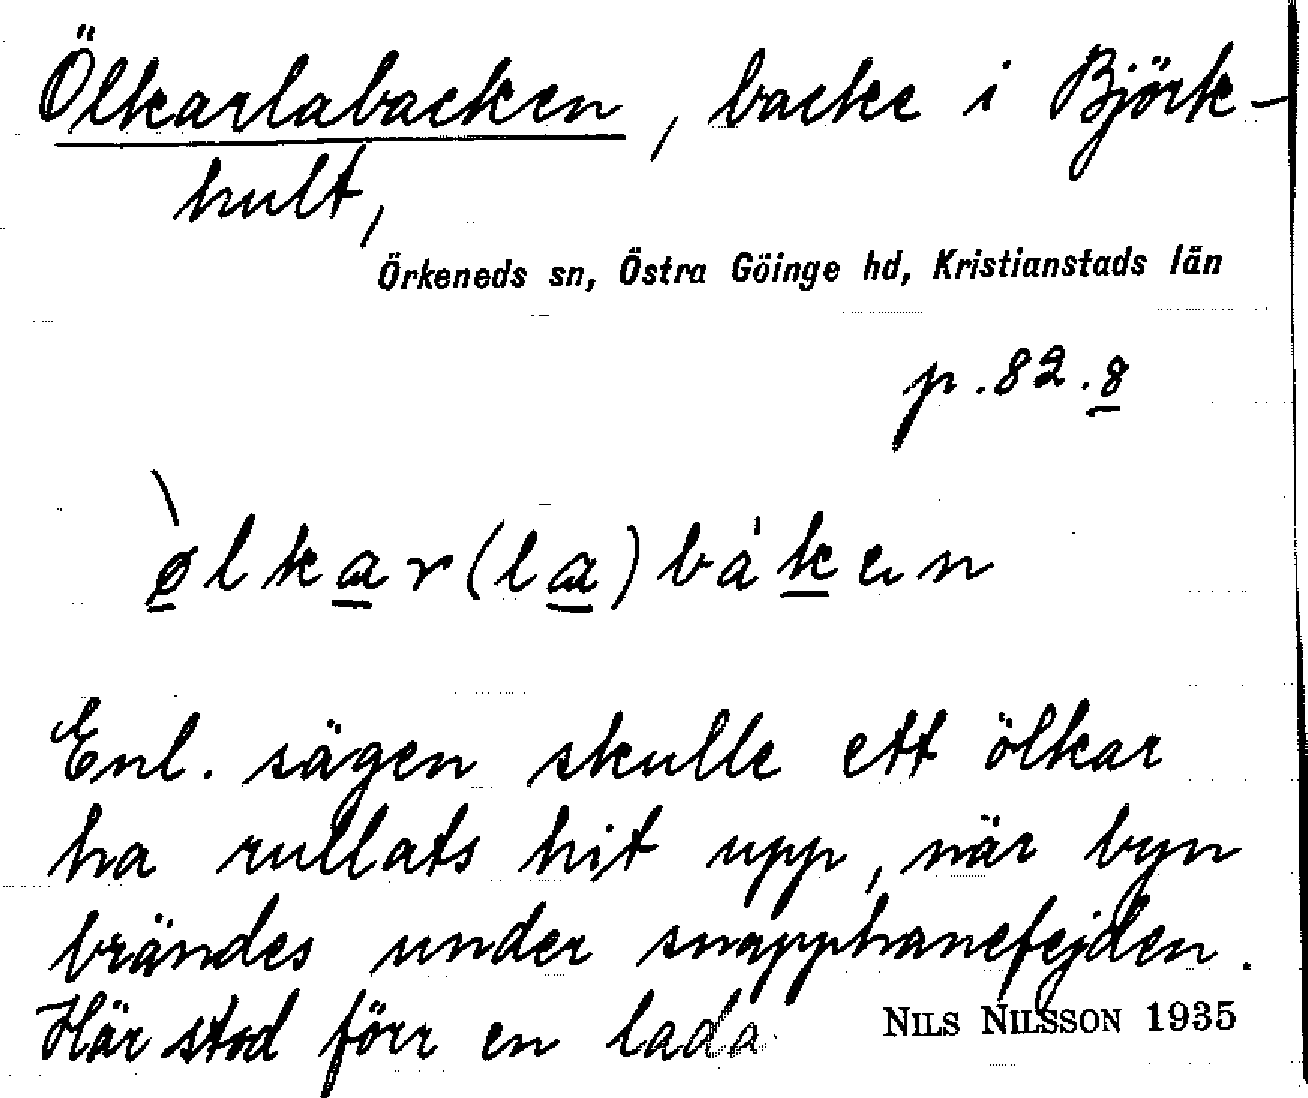 Ölkarlabacken, backe i Björk-
hult,
Örkeneds sn, Östra Göinge hd, Kristianstads län
p. 82. 8
ø̀lkar(la)báken
Enl. sägen skulle ett ölkar
ha rullats hit upp, när byn
brändes under snapphanefejden.
Här stod förr en lada.
NILS NILSSON 1935